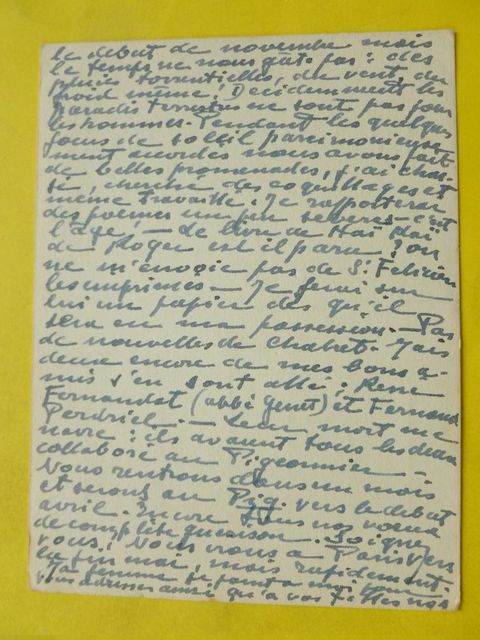 le début de novembre mais
le temps ne nous gâte pas : des
pluies torrentielles, du vent, du
froid même ! Décidemment les
paradis terrestres ne sont pas pour
les hommes. Pendant les quelques
jours de soleil parcimonieuse
ment accordés nous avons fait
de belles promenades, j'ai chas-
sé, cherché des coquillages et
même travaillé. Je rapporterai
des poèmes un peu sévères - c'est
l'âge ! - Le livre de Haï Kaï
de Roger est il paru ? on
ne m'envoie pas de St Félicien
les imprimés - Je ferai sur
lui un papier dès qu'il
sera en ma possession. - Pas
de nouvelles de Chabret. - Mais
deux encore de mes bons a-
mis s'en sont allé : René
Fernandat (abbé Genet) et Fernand
Perdriel. - Leur mort me
navre : ils avaient tous les deux
collaboré au Pigeonnier -
Nous rentrons dans un mois
et serons au Pig. vers le début
avril. Encore tous nos voeux
de complète guérison. Soignez
vous ! Nous irons à Paris vers
la fin mai, mais rapidement
Ma femme se joint à moi pour
vous adresser ainsi qu'à vos filles nos